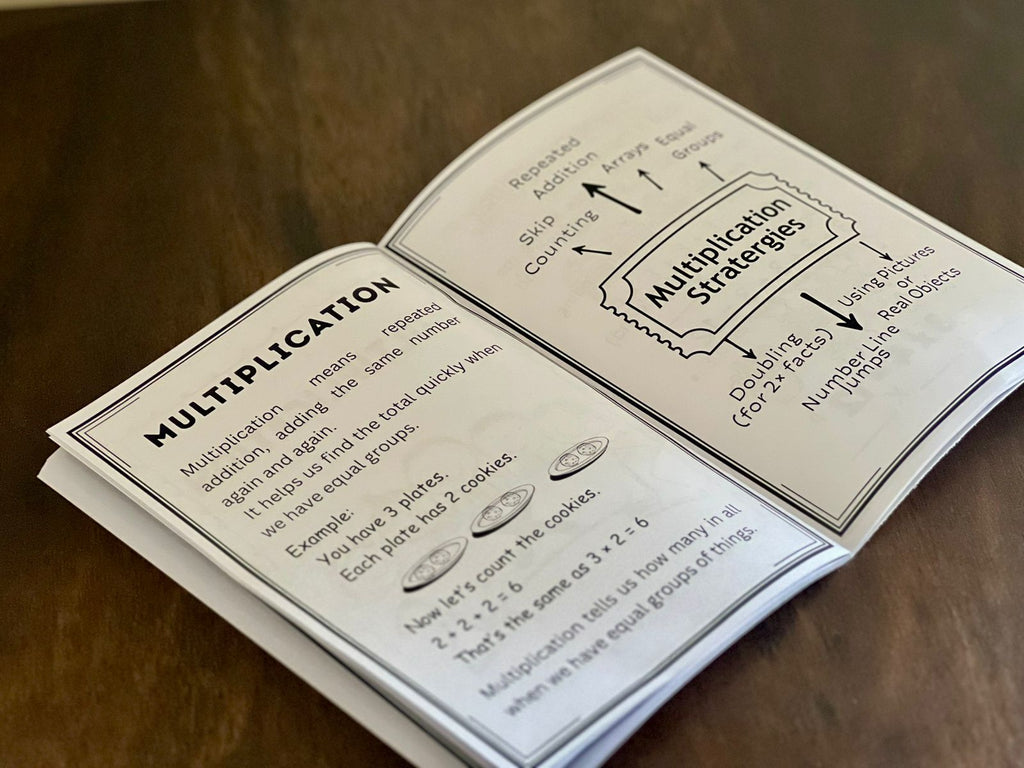 MULTIPLICATION
Multiplication means repeated
addition, adding the same number
again and again.
It helps us find the total quickly when
we have equal groups.
Example:
You have 3 plates.
Each plate has 2 cookies.
Now let's count the cookies.
2 + 2 + 2 = 6
That's the same as 3 × 2 = 6
Multiplication tells us how many in all
when we have equal groups of things.
Repeated
Addition
Arrays
Equal
Groups
Skip
Counting
Multiplication
Stratergies
Using Pictures
or
Real Objects
Doubling
(for 2x facts)
Number Line
Jumps